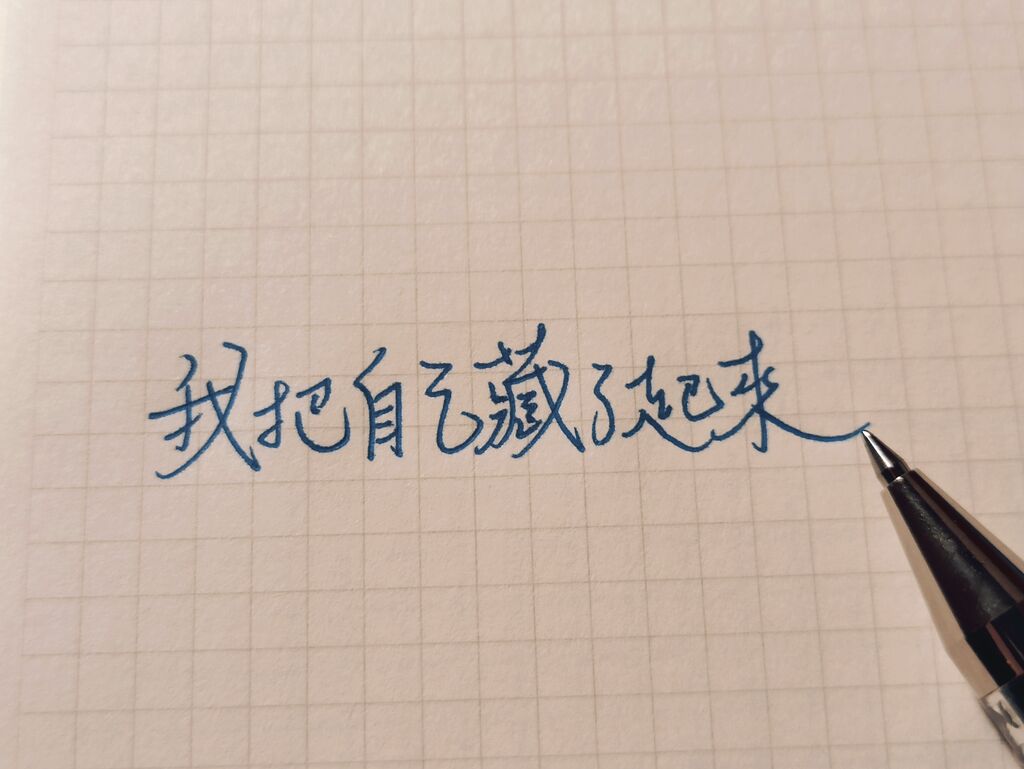 我把自己藏了起来